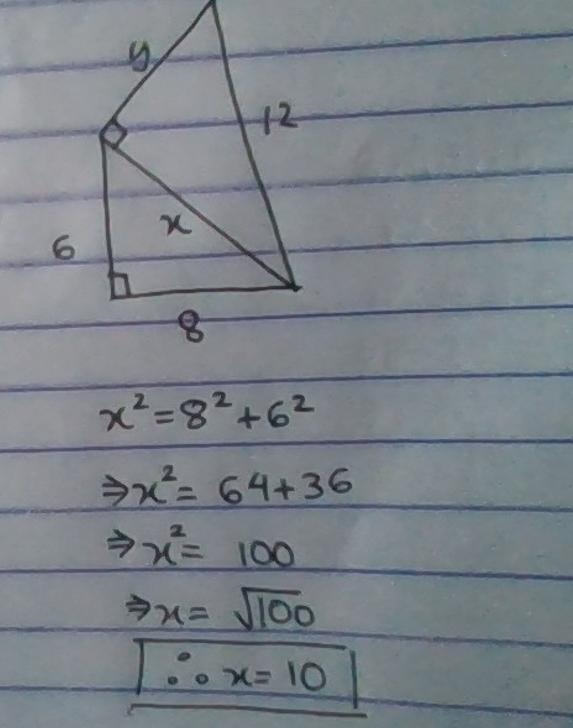 y
12
x
6
8
x² = 8² + 6²
⇒ x² = 64 + 36
⇒ x² = 100
⇒ x = √100
∴ x = 10